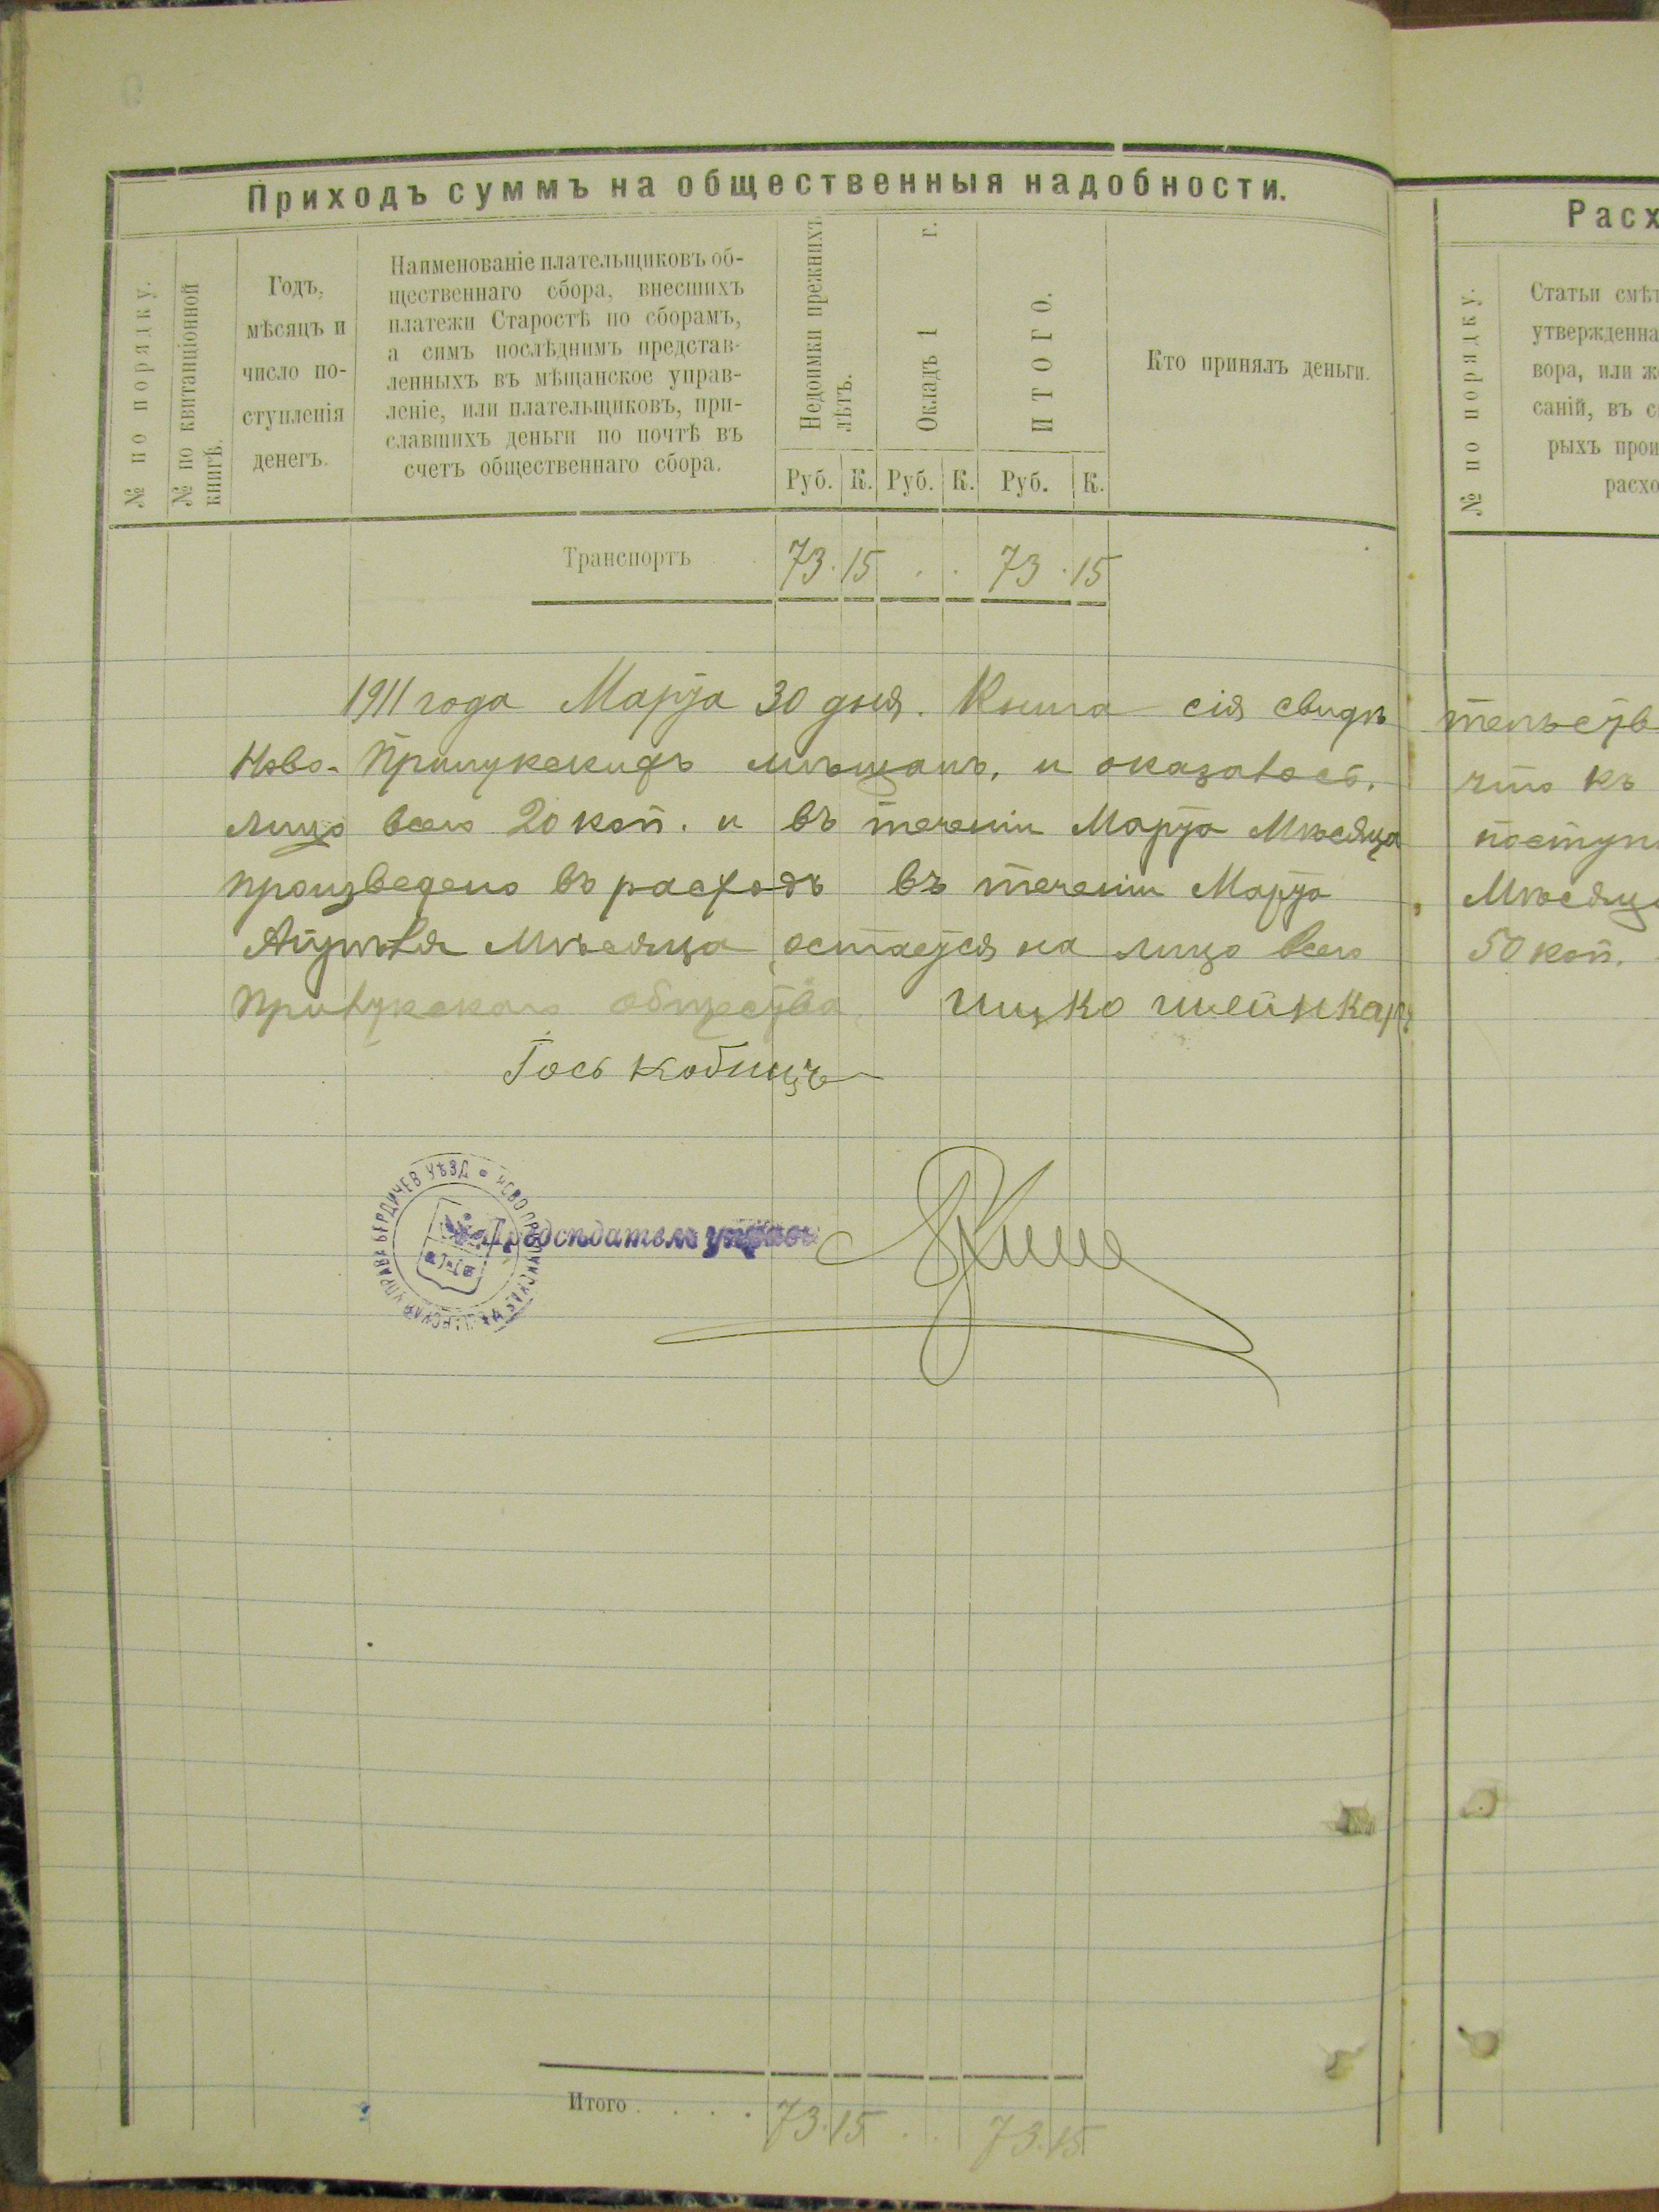 Приходъ суммъ на общественныя надобности.
№ по порядку.
№ по квитанціонной
книгѣ.
Годъ,
мѣсяцъ и
число по-
ступленія
денегъ.
Наименованіе плательщиковъ об-
щественнаго сбора, внесшихъ
платежи Старостѣ по сборамъ,
а симъ послѣднимъ представ-
ленныхъ въ мѣщанское управ-
леніе, или плательщиковъ, при-
славшихъ деньги по почтѣ въ
счетъ общественнаго сбора.
Недоимки прежнихъ
лѣтъ.
Окладъ 1 г.
ИТОГО.
Кто принялъ деньги.
Руб. К. Руб. К. Руб. К.
Транспортъ 73. 15 . . 73 . 15
1911 года Марта 30 дня. Книга сія свидѣ
Ново-Прилукскихъ мѣщанъ, и оказалось,
лицо всего 20 коп. и въ теченіи Марта Мѣсяца
произведено въ расходъ въ теченіи Марта
Мѣсяца остается на лицо всего
Прилукскаго общества
Предсѣдатель управы
БЕРДИЧЕВ УѢЗД
Итого . . . . 73. 15 . . 73. 15
Расх
№ по порядку.
Статьи смѣт
утвержденна
вора, или ж
саній, въ с
рыхъ прои
расхо
тельств
что къ
поступи
Мѣсяца
50 коп.